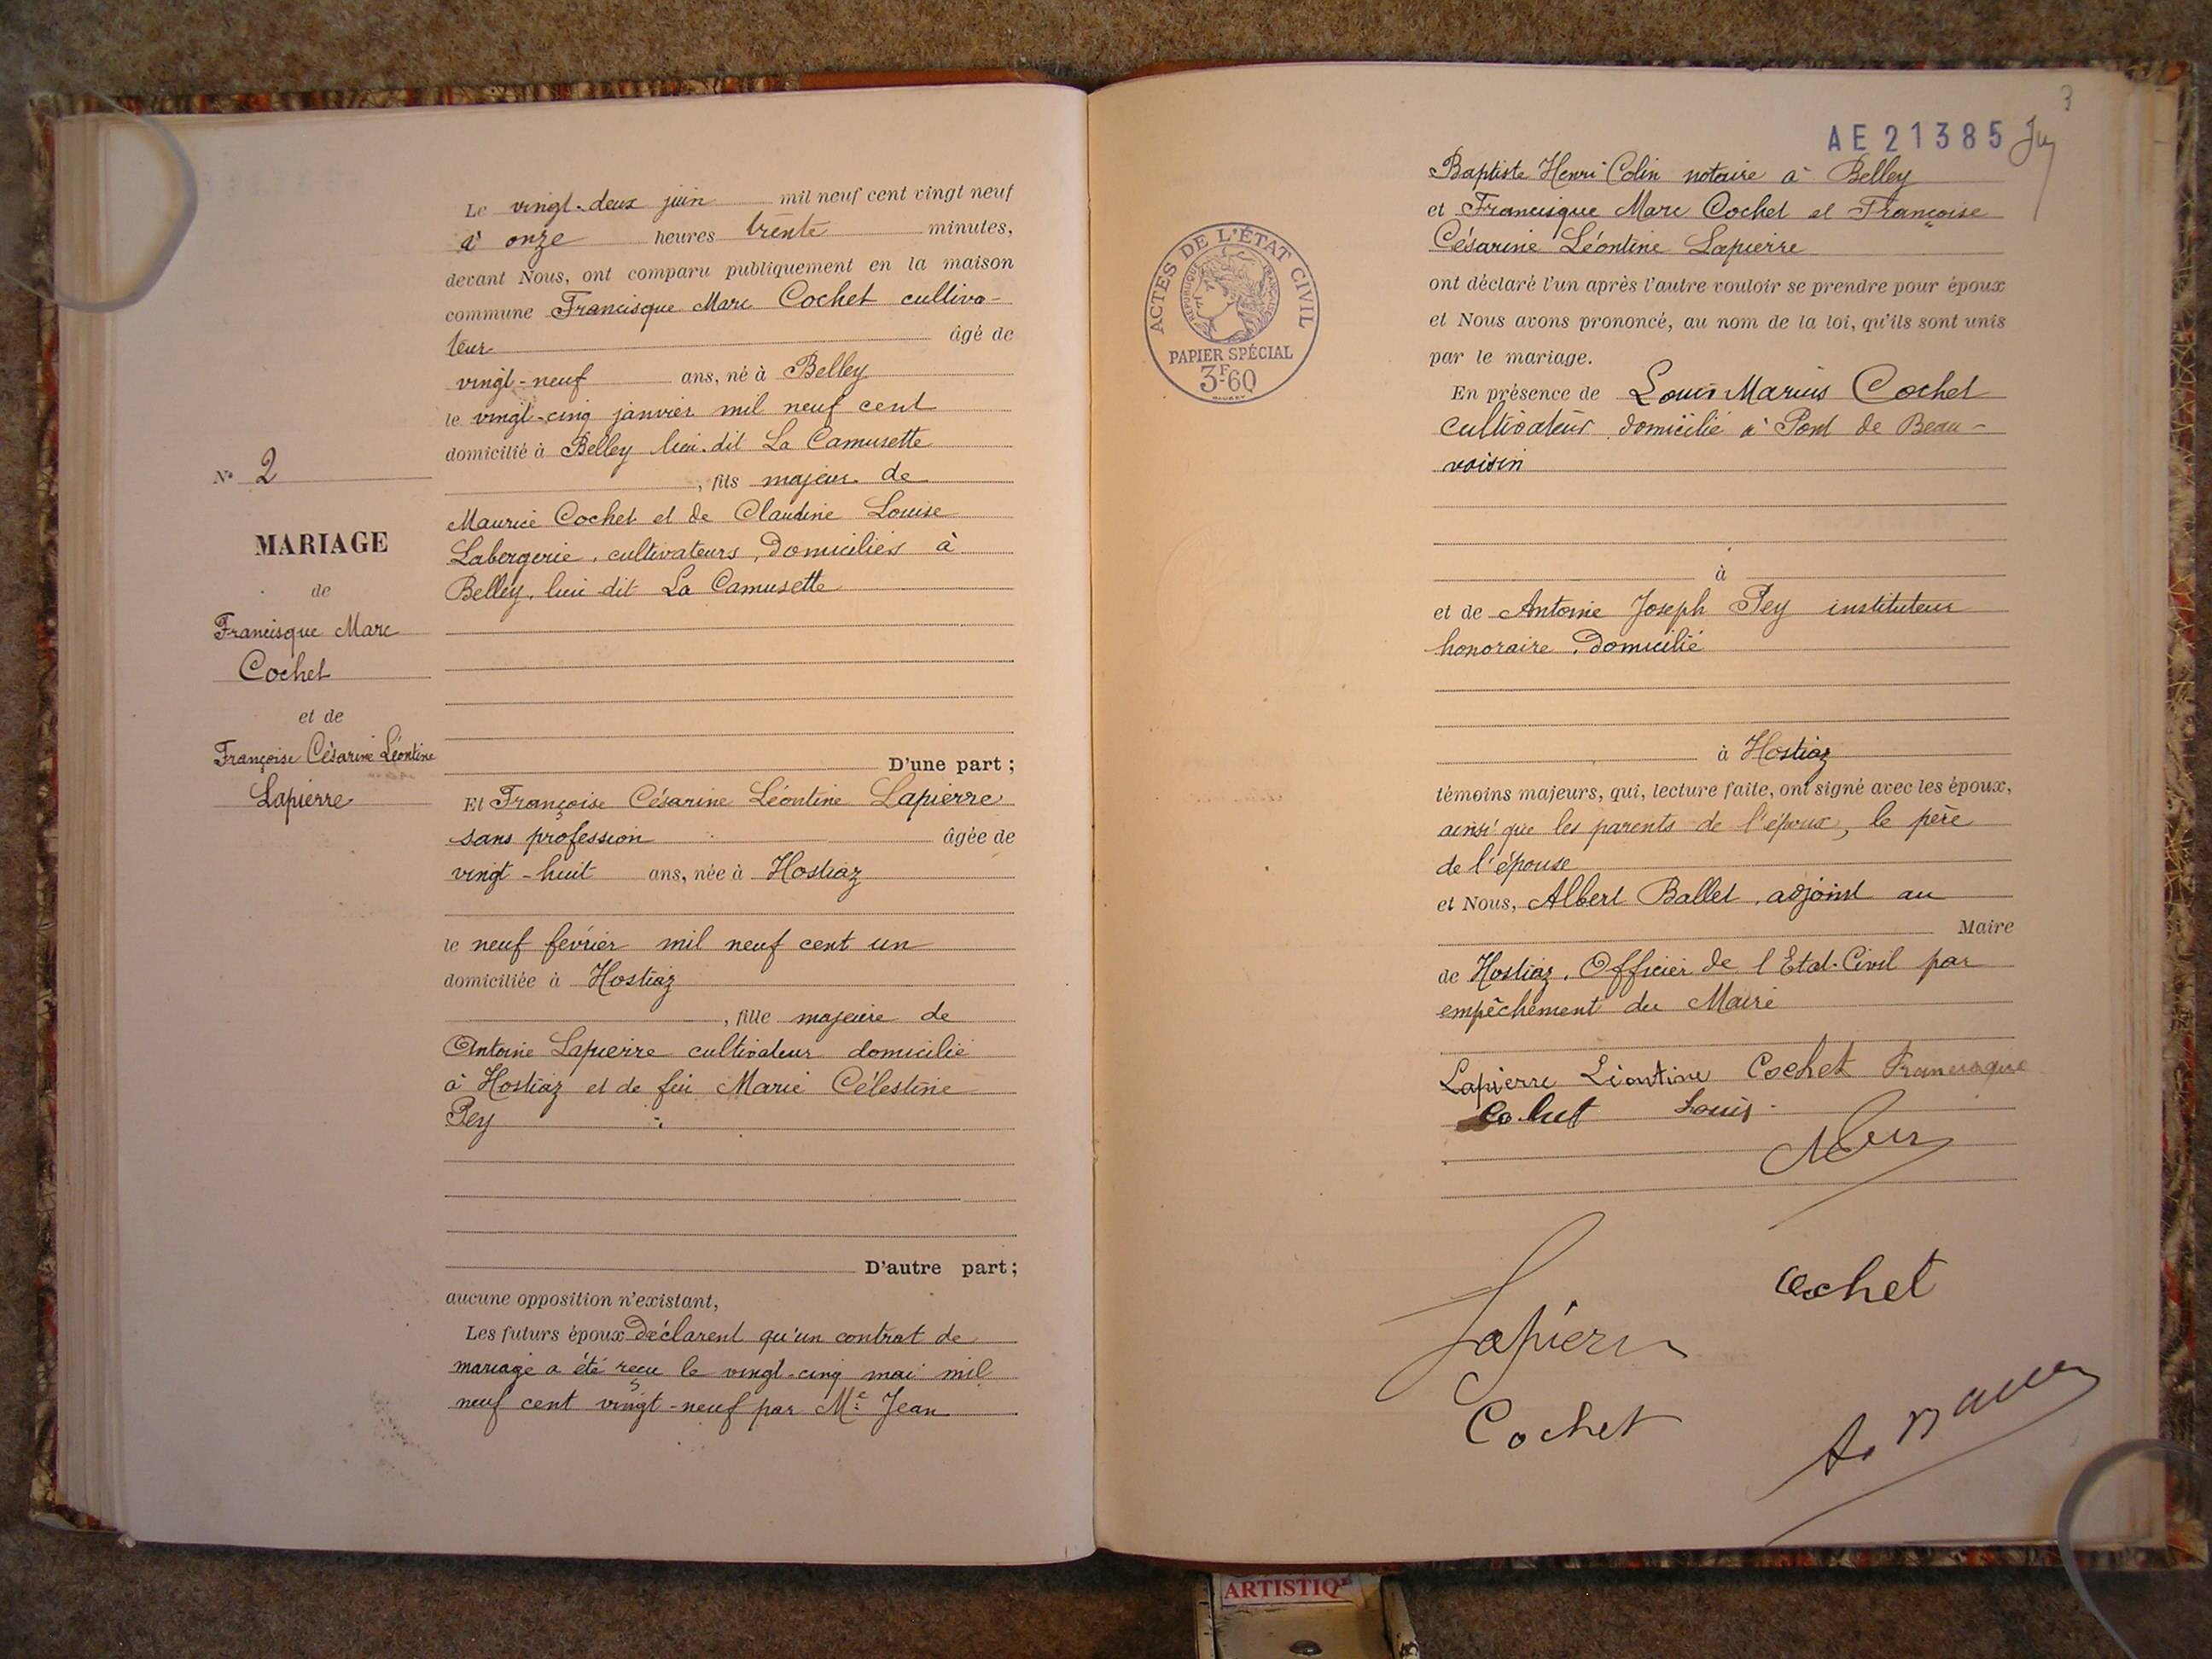 N° 2
MARIAGE
de
Francisque Marc
Cochet
et de
Françoise Césarine Léontine
Lapierre
Le vingt-deux juin mil neuf cent vingt neuf
à onze heures trente minutes,
devant Nous, ont comparu publiquement en la maison
commune Francisque Marc Cochet cultiva-
teur âgé de
vingt-neuf ans, né à Belley
le vingt-cinq janvier mil neuf cent
domicilié à Belley lieu-dit La Camusette
, fils majeur de
Maurice Cochet et de Claudine Louise
Labergerie, cultivateurs, domiciliés à
Belley, lieu-dit La Camusette
D'une part ;
Et Françoise Césarine Léontine Lapierre
sans profession âgée de
vingt-huit ans, née à Hostiaz
le neuf février mil neuf cent un
domiciliée à Hostiaz
, fille majeure de
Antoine Lapierre cultivateur domicilié
à Hostiaz et de feu Marie Célestine
Rey
D'autre part ;
aucune opposition n'existant,
Les futurs époux déclarent qu'un contrat de
mariage a été reçu le vingt-cinq mai mil
neuf cent vingt-neuf par Me Jean
3
AE 21385
ACTES DE L'ÉTAT CIVIL
RÉPUBLIQUE FRANÇAISE
PAPIER SPÉCIAL
3F60
Baptiste Henri Colin notaire à Belley
et Francisque Marc Cochet et Françoise
Césarine Léontine Lapierre
ont déclaré l'un après l'autre vouloir se prendre pour époux
et Nous avons prononcé, au nom de la loi, qu'ils sont unis
par le mariage.
En présence de Louis Marius Cochet
cultivateur domicilié à Pont de Beau-
voisin
à
et de Antoine Joseph Rey instituteur
honoraire, domicilié
à Hostiaz
témoins majeurs, qui, lecture faite, ont signé avec les époux,
ainsi que les parents de l'époux, le père
de l'épouse
et Nous, Albert Ballet, adjoint au
Maire
de Hostiaz, Officier de l'Etat-Civil par
empêchement du Maire
Lapierre Léontine Cochet Francisque
Cochet Louis
Cochet
Lapierre
Cochet
ARTISTIQ